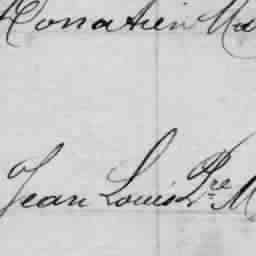 Donatien Ma
Jean Louis Pre M